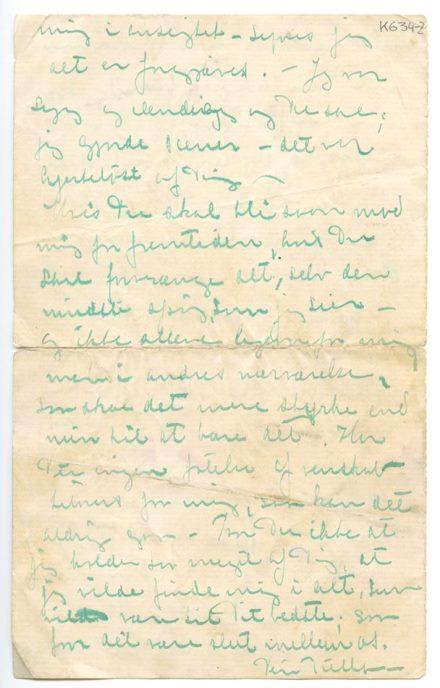 K634-2
mig i ansigtet – synes jeg
det er forgjæves. – Jeg var
syg og elendig og Du saa,
jeg gjorde scener – det var
hjerteløst af Dig –
Hvis Du skal bli saan mod
mig for fremtiden, hvis Du
skal forvrænge alt, selv den
mindste spøg, som jeg sier –
og ikke alene ligeoverfor mig
men i andres nærværelse,
saa skal det mere styrke end
min til at bære det. Har
Du ingen følelse af venskab
for mig, saa kan det
aldrig – Tror Du ikke at
jeg holder saa meget af Dig, at
jeg vilde finde mig i alt, som
var dit bedste, saa
for det være slut mellem os.
Din Tulla –